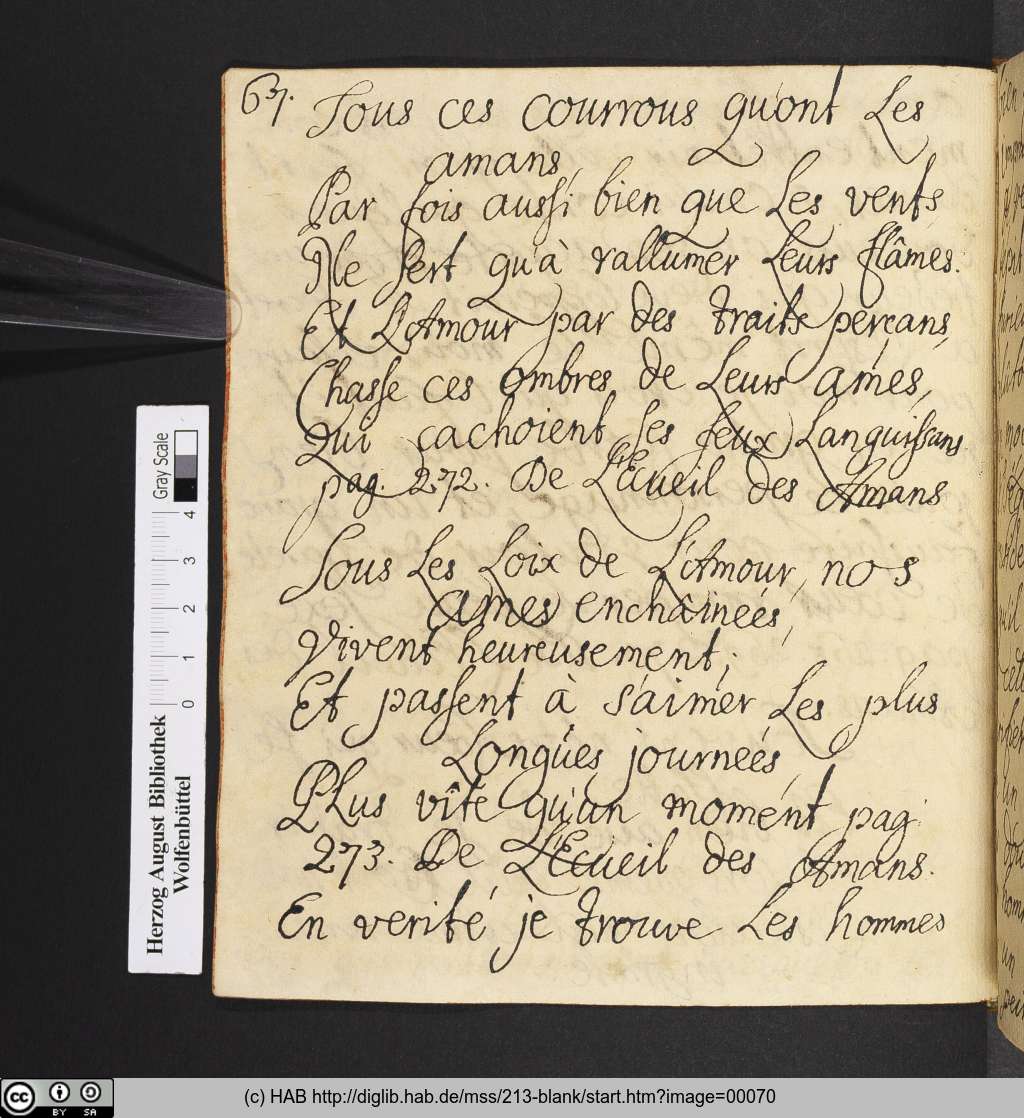 67. Tous ces courrous qu'ont Les
amans,
Par fois aussi bien que Les vents
Ne sert qu'à rallumer Leurs flâmes.
Et L'Amour par des traits perçans,
Chasse ces ombres de Leurs ames,
Qui cachoient ses feux Languissans.
pag. 272. De L'Ecueil des Amans
Sous Les Loix de L'Amour, nos
ames enchâinées,
Vivent heureusement;
Et passent à s'aimer Les plus
Longües journeés,
Plus vîte qu'un moment pag.
273. De L'Ecueil des Amans.
En verité je trouve Les hommes
Herzog August Bibliothek
Wolfenbüttel
0 1 2 3 4
Gray Scale
(c) HAB http://diglib.hab.de/mss/213-blank/start.htm?image=00070
cc BY SA